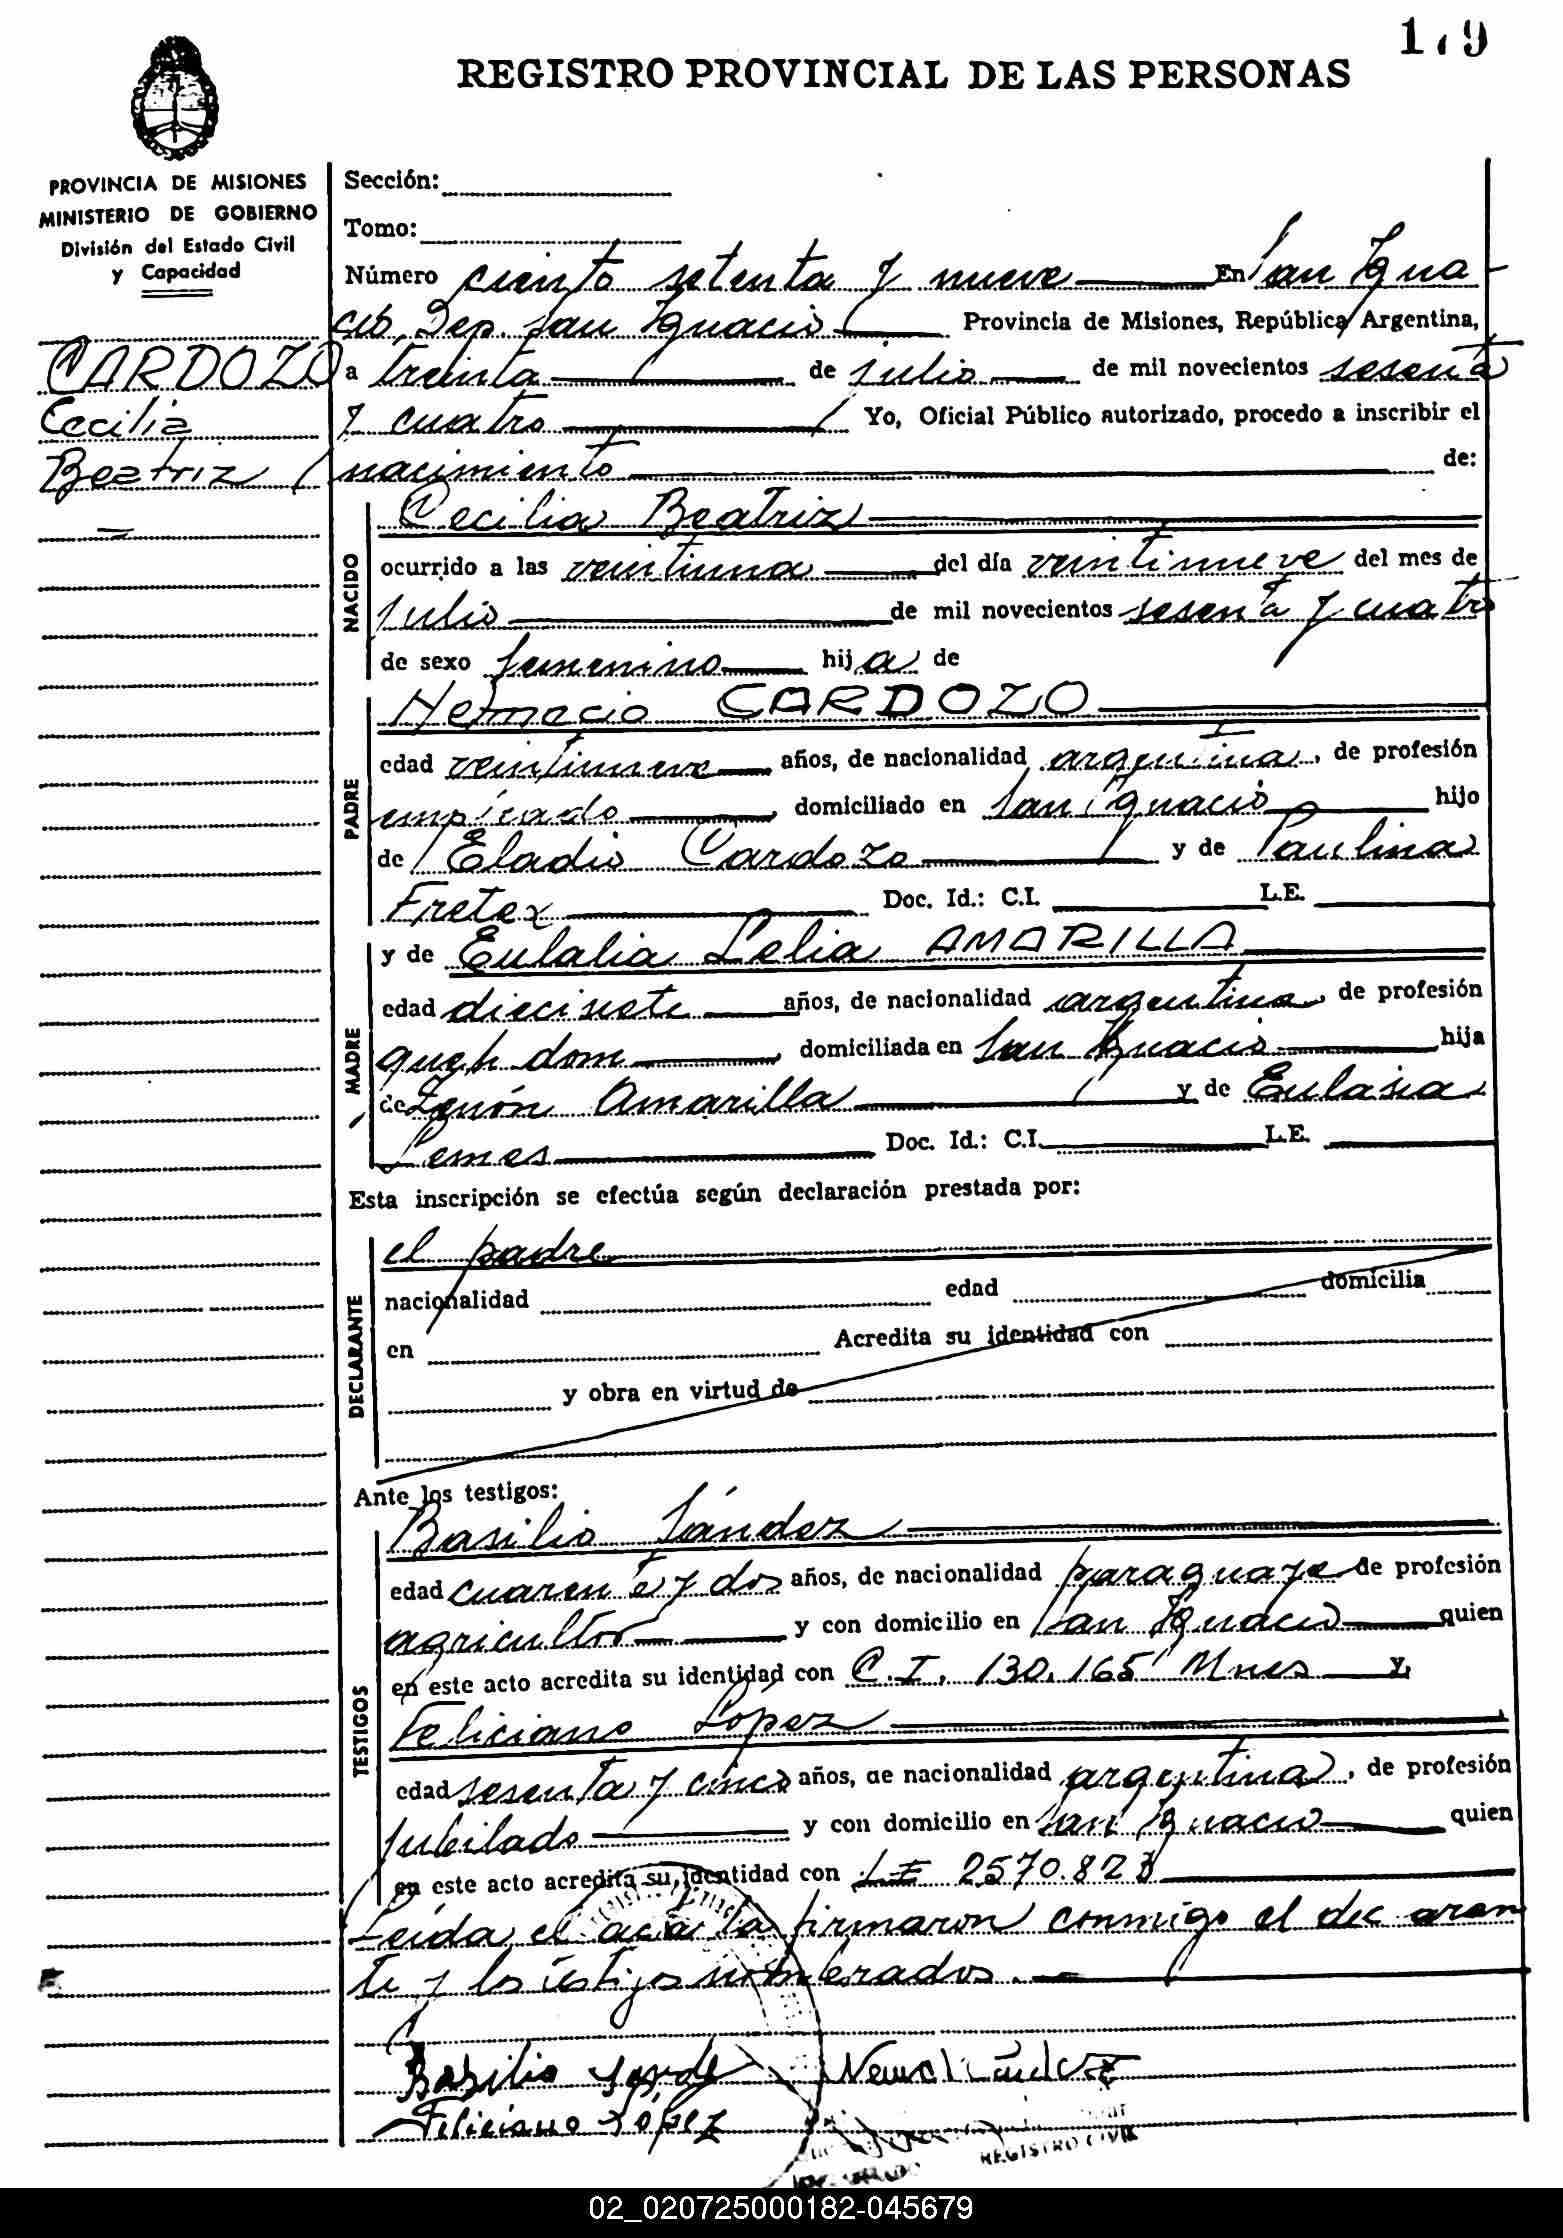 179
REGISTRO PROVINCIAL DE LAS PERSONAS
PROVINCIA DE MISIONES
MINISTERIO DE GOBIERNO
División del Estado Civil
y Capacidad
CARDOZO
Cecilia
Beatriz
Sección:
Tomo:
Número ciento setenta y nueve En San Igna-
cio Dep. San Ignacio Provincia de Misiones, República Argentina,
a treinta de julio de mil novecientos sesenta
y cuatro Yo, Oficial Público autorizado, procedo a inscribir el
nacimiento de:
NACIDO
Cecilia Beatriz
ocurrido a las veintiuna del día veintinueve del mes de
julio de mil novecientos sesenta y cuatro
de sexo femenino hija de
PADRE
CARDOZO
edad veintinueve años, de nacionalidad argentina, de profesión
empleado domiciliado en San Ignacio hijo
de Eladio Cardozo y de Paulina
Fretez Doc. Id.: C.I. L.E.
MADRE
y de Eulalia Lelia AMARILLA
edad diecisiete años, de nacionalidad argentina, de profesión
queh dom domiciliada en San Ignacio hija
de Zenón Amarilla y de
Lemes Doc. Id.: C.I. L.E.
Esta inscripción se efectúa según declaración prestada por:
DECLARANTE
el padre
nacionalidad edad domicilia
en Acredita su identidad con
y obra en virtud de
Ante los testigos:
TESTIGOS
Basilio Sández
edad cuarenta y dos años, de nacionalidad paraguaya de profesión
agricultor y con domicilio en San Ignacio quien
en este acto acredita su identidad con C.I. 130.165 Mnes y,
Feliciano López
edad sesenta y cinco años, de nacionalidad argentina, de profesión
jubilado y con domicilio en San Ignacio quien
en este acto acredita su identidad con LE 2570.82
Leída el acta la firmaron conmigo el declaran
te y los testigos nombrados.
Basilio
Feliciano López
REGISTRO CIVIL
02_020725000182-045679